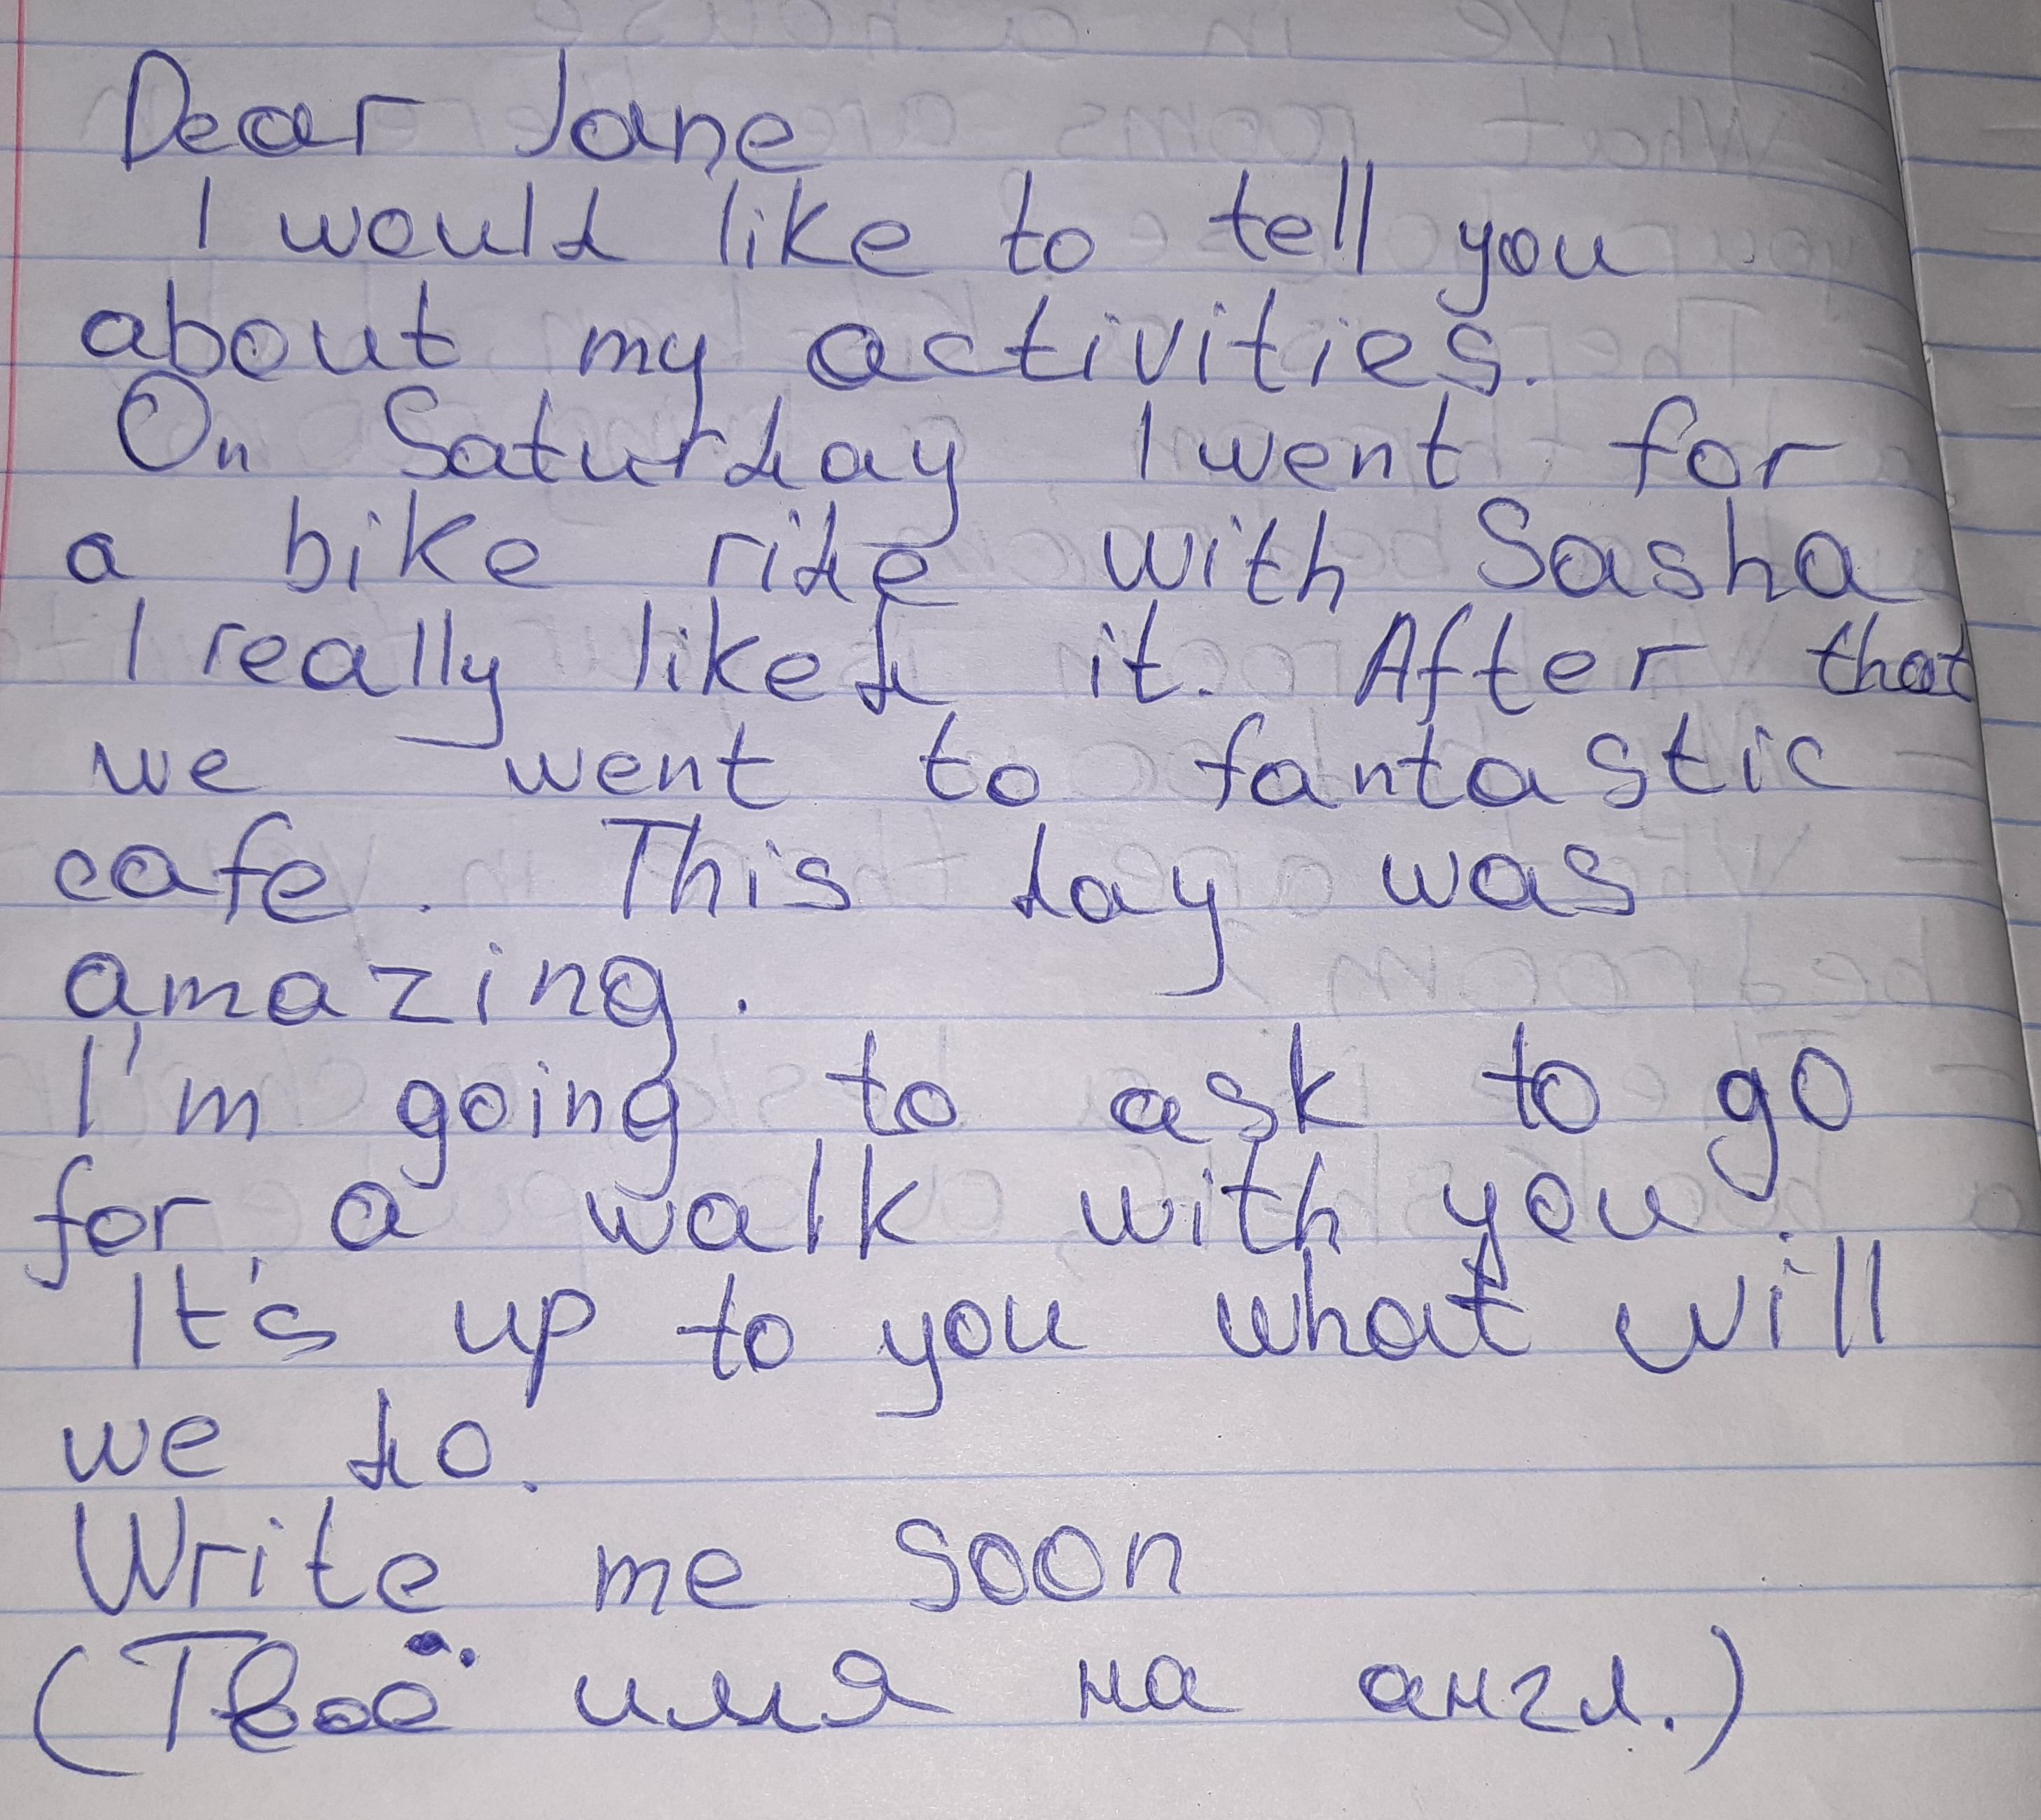 Dear Jane
I would like to tell you
about my activities.
On Saturday I went for
a bike ride with Sasha
I really liked it. After that
we went to fantastic
cafe. This day was
amazing.
I'm going to ask to go
for a walk with you.
It's up to you what will
we do.
Write me soon
(Твоё имя на англ.)